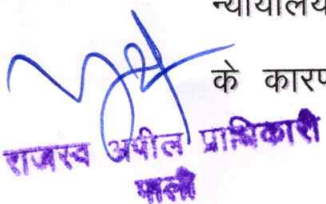 न्यायालय
के कारण
राजस्व अपील प्राधिकारी
पाली